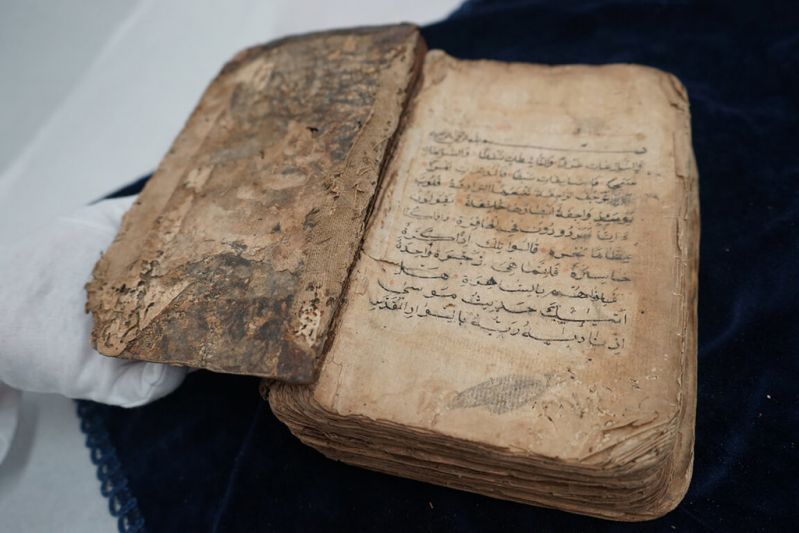 والنازعات غرقا والناشطات نشطا والسابحات
سبحا فالسابقات سبقا فالمدبرات امرا
يوم ترجف الراجفة تتبعها الرادفة قلوب
يومئذ واجفة ابصارها خاشعة يقولون
ءانا لمردودون في الحافرة ءاذا كنا
عظاما نخرة قالوا تلك اذا كرة
خاسرة فانما هي زجرة واحدة
فاذا هم بالساهرة هل
اتيك حديث موسى
اذ ناديه ربه بالواد المقدس